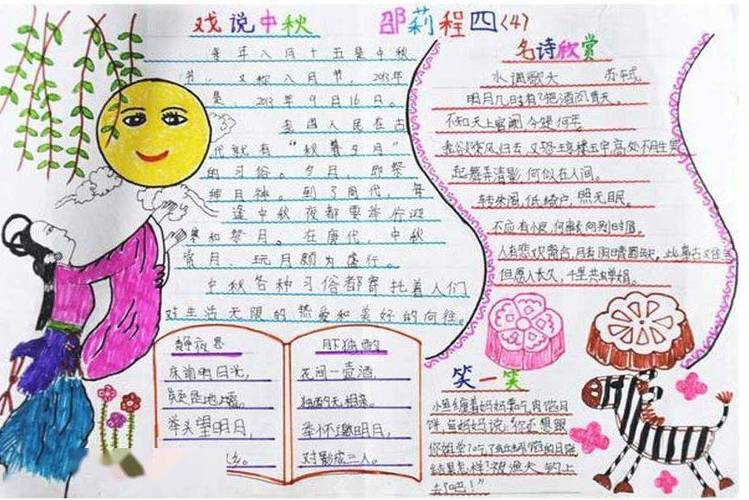 戏说中秋 邵莉程四(4)
每年八月十五是中秋
节，又称八月节，2013年
是，2013年9月16日。
我国人民在古
代就有“秋暮夕月”
的习俗。夕月，即祭
拜月神。到了周代，每
逢中秋夜都要举行迎
寒和祭月。在唐代，中秋
赏月、玩月颇为盛行。
中秋各种习俗都寄托着人们
对生活无限的热爱和美好的向往。
静夜思
床前明月光，
疑是地上霜。
举头望明月，
月下独酌
花间一壶酒，
独酌无相亲。
举杯邀明月，
对影成三人。
名诗欣赏
水调歌头 苏轼
明月几时有？把酒问青天。
不知天上宫阙 今夕是何年
我欲乘风归去 又恐琼楼玉宇高处不胜寒
起舞弄清影 何似在人间。
转朱阁，低绮户，照无眠。
不应有恨，何事长向别时圆。
人有悲欢离合，月有阴晴圆缺，此事古难全
但愿人长久，千里共婵娟。
笑一笑
小鱼缠着妈妈要吃肉馅月
饼，鱼妈妈说：你还想跟
你姐学？吃了
结果怎样？被渔夫钓上
去了吧！”